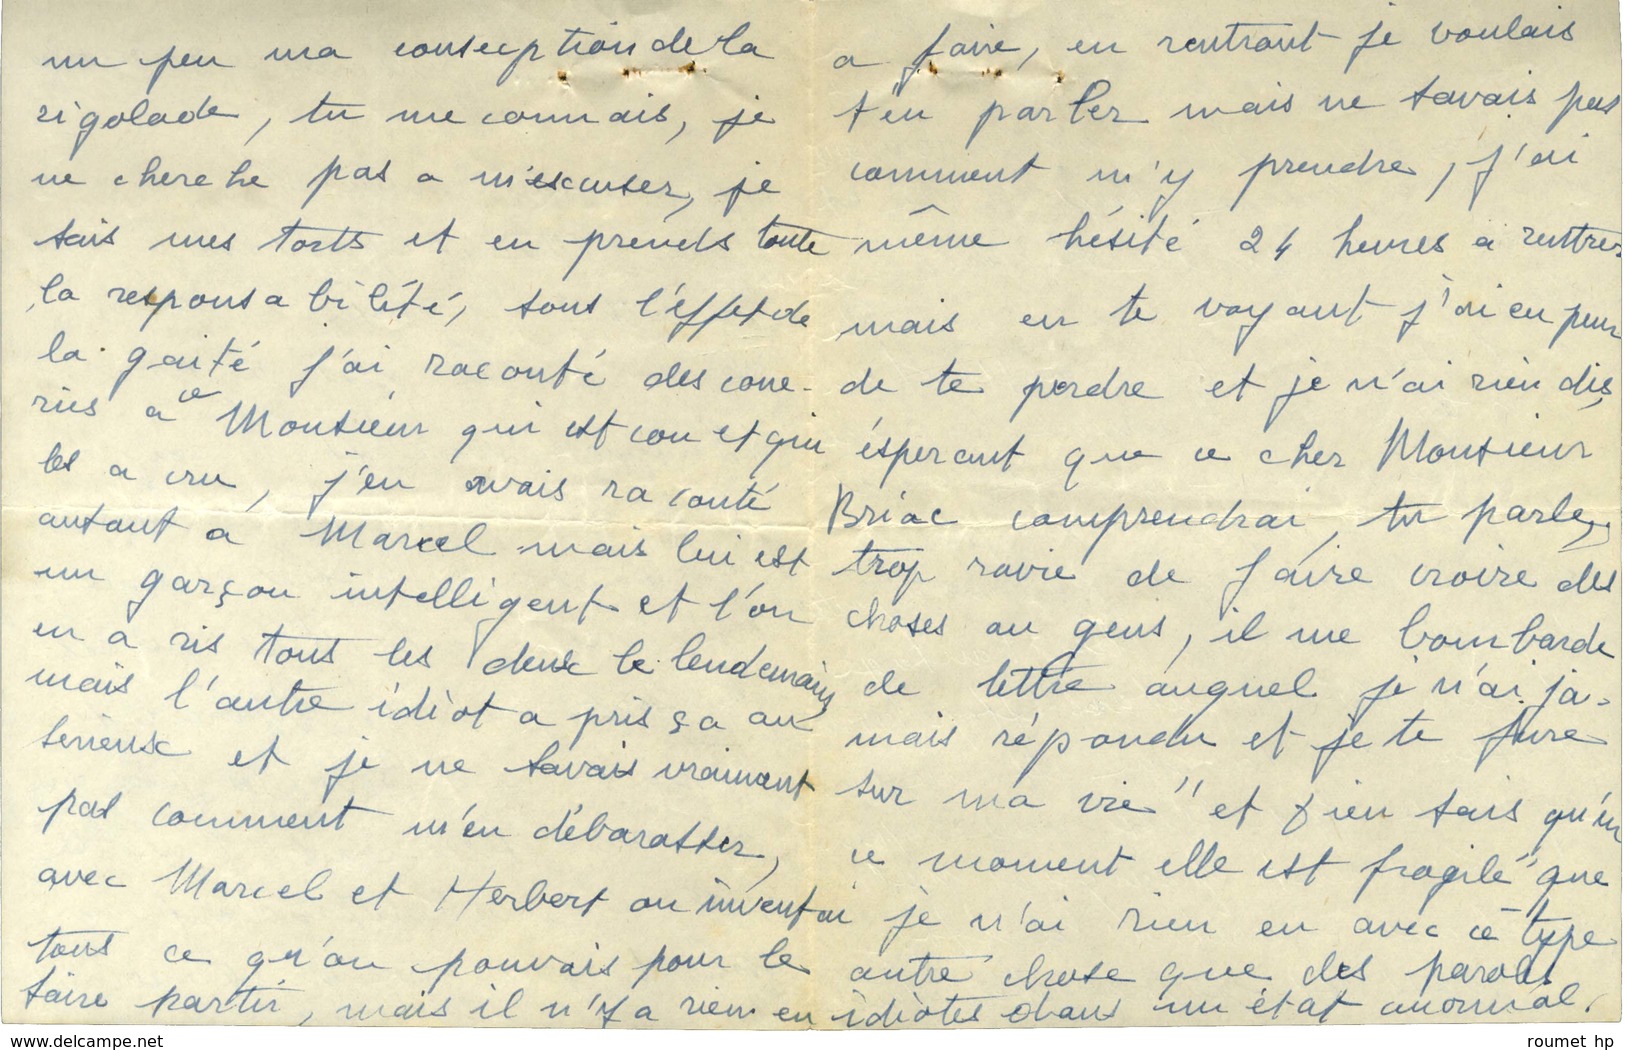 un peu ma consception de la
rigolade, tu me connais, je
ne cherche pas a m'escuser, je
sais mes torts et en prends toute
la responsabilité, sous l'éffet de
la gaité j'ai raconté des cone-
ries a ce Monsieur qui est con et qui
les a cru, j'en avais raconté
autant a Marcel mais lui est
un garçon intelligent et l'on
en a ris tous les deux le lendemain,
mais l'autre idiot a pris ça au
serieux et je ne savais vraiment
pas comment m'en débarasser,
avec Marcel et Herbert on inventai
tous ce qu'on pouvais pour le
faire partir, mais il n'y a rien en
a faire, en rentrant je voulais
t'en parler mais ne savais pas
comment m'y prendre, j'ai
même hésité 24 heures a rentrer
mais en te voyant j'ai eu peur
de te perdre et je n'ai rien dis,
ésperant que ce cher Monsieur
Briac comprendrai, tu parles,
trop ravie de faire croire des
choses au gens, il me bombarde
de lettre auquel je n'ai ja-
mais répondu et je te jure
sur ma vie "et Dieu sais qu'en
ce moment elle est fragile" que
je n'ai rien eu avec ce type
autre chose que des paroles
idiotes dans un état anormal.
roumet hp